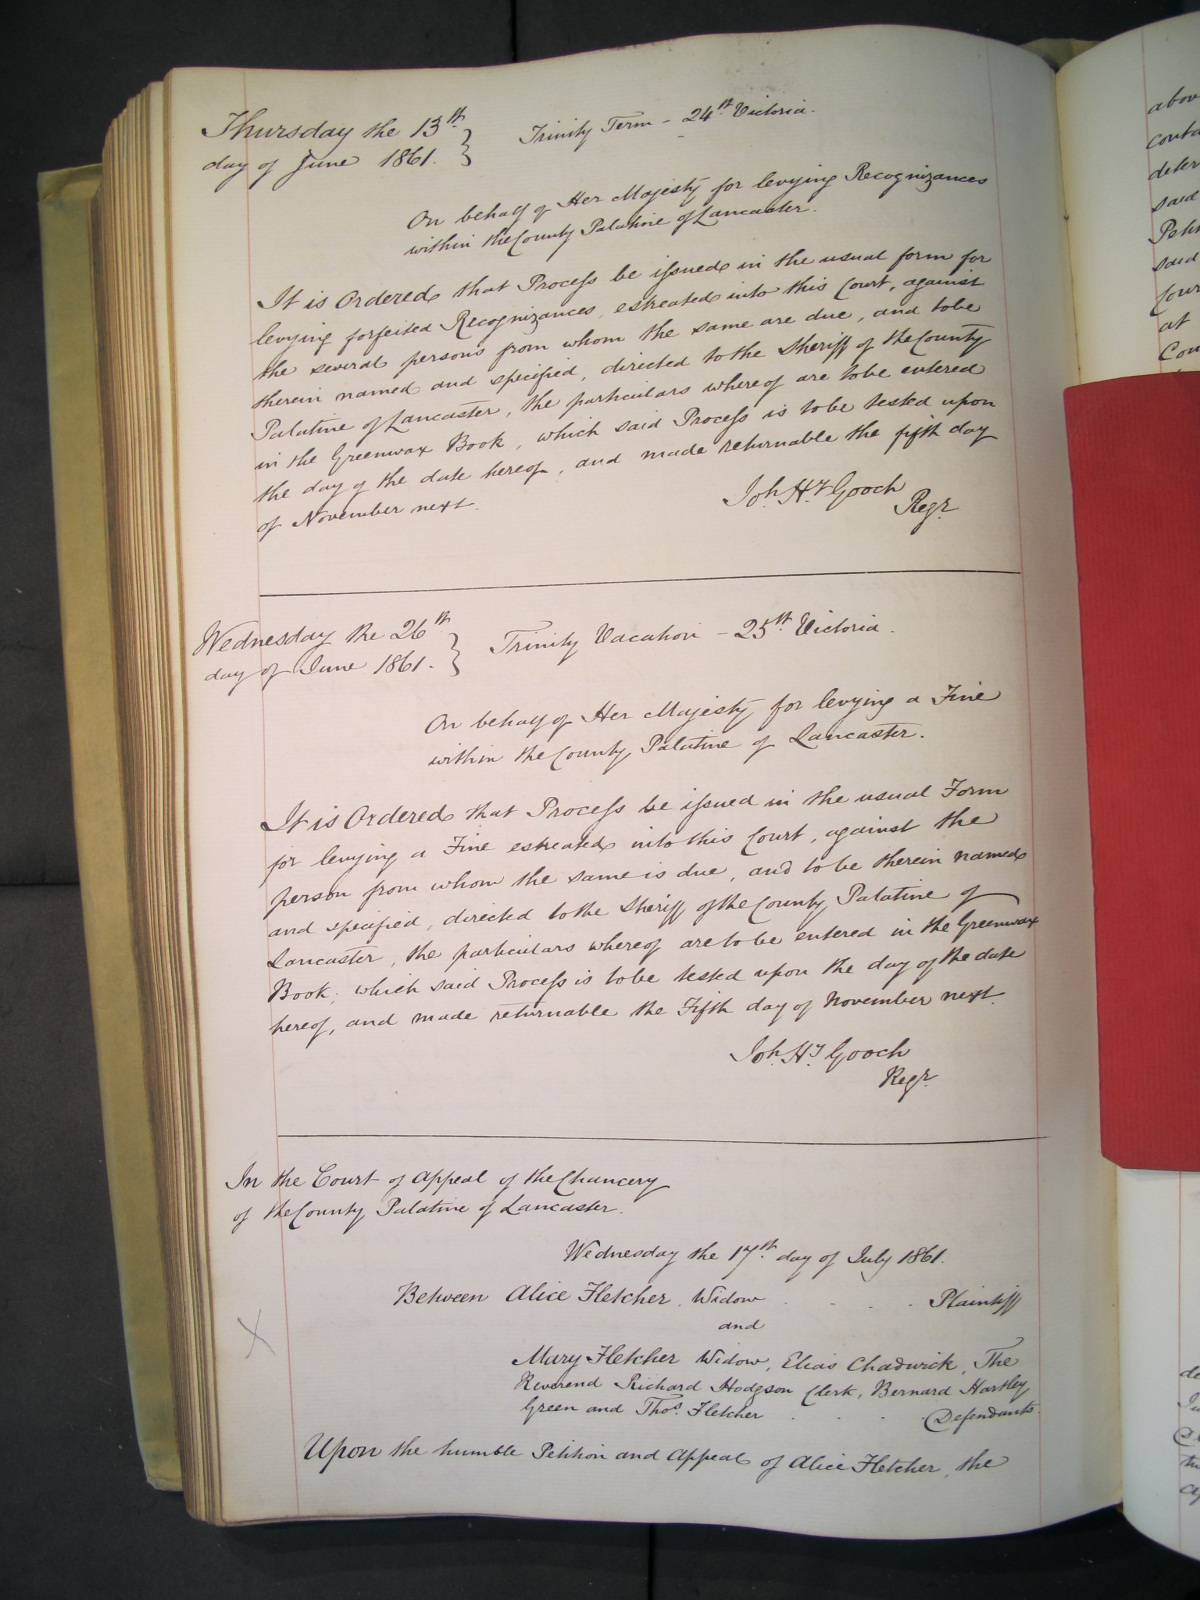 Thursday the 13th
day of June 1861.
Trinity Term - 24th Victoria.
On behalf of Her Majesty for levying Recognizances
within the County Palatine of Lancaster.
It is Ordered that Process be issued in the usual form for
levying forfeited Recognizances, estreated into this Court, against
the several persons from whom the same are due, and to be
therein named and specified, directed to the Sheriff of the County
Palatine of Lancaster, the particulars whereof are to be entered
in the Greenwax Book, which said Process is to be tested upon
the day of the date hereof, and made returnable the fifth day
of November next.
Joh. Hy Gooch
Regr.
Wednesday the 26th
day of June 1861.
Trinity Vacation - 25th Victoria.
On behalf of Her Majesty for levying a Fine
within the County Palatine of Lancaster.
It is Ordered that Process be issued in the usual Form
for levying a Fine estreated into this Court, against the
person from whom the same is due, and to be therein named
and specified, directed to the Sheriff of the County Palatine of
Lancaster, the particulars whereof are to be entered in the Greenwax
Book; which said Process is to be tested upon the day of the date
hereof, and made returnable the Fifth day of November next.
Joh. Hy Gooch
Regr.
In the Court of Appeal of the Chancery
of the County Palatine of Lancaster.
Wednesday the 17th day of July 1861.
Between Alice Fletcher, Widow . . . . Plaintiff
and
Mary Fletcher Widow, Elias Chadwick, The
Reverend Richard Hodgson Clerk, Bernard Hartley
Green and Thos. Fletcher . . . Defendants.
X
Upon the humble Petition and Appeal of Alice Fletcher, the
said
Petit
said
at